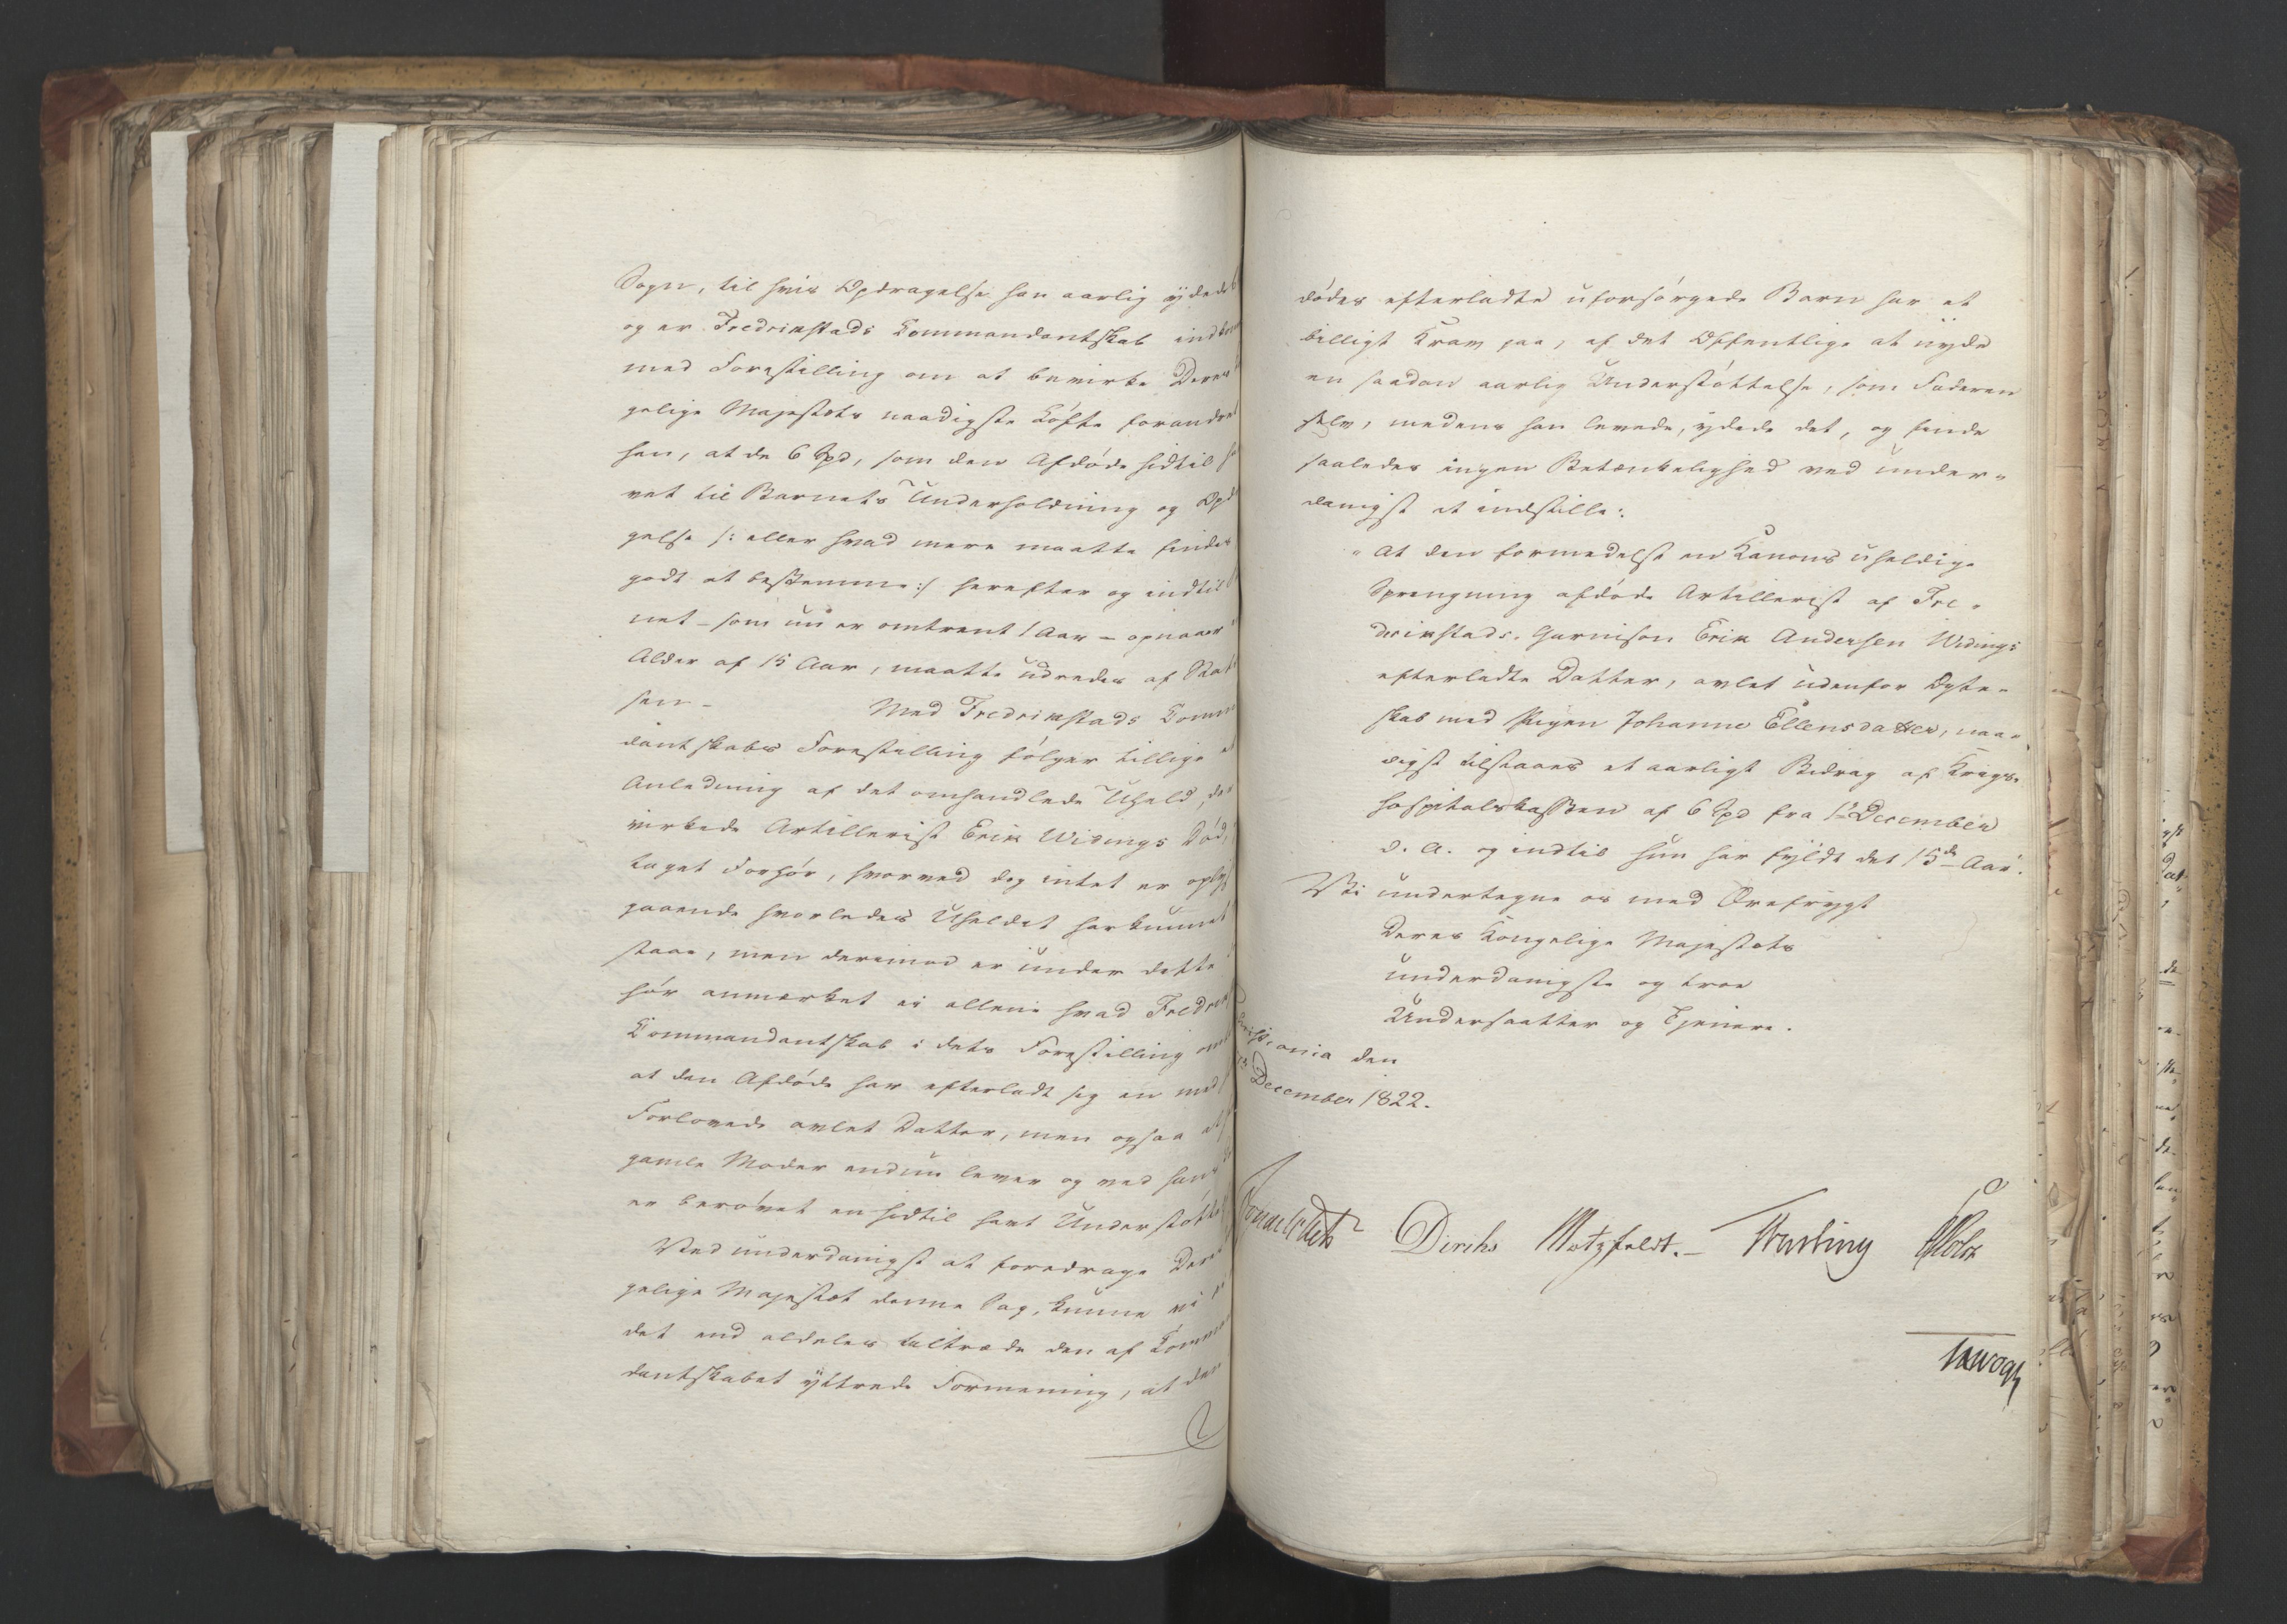 Sogn, til hvis Opdragelse han aarlig ydede
og er Fredrikstads Commandantskab ind
med Forestilling om at bevirke Deres
gelige Majestæts naadigste Løfte forandret
hen, at de 6 Spd, som den Afdøde hidtil
vet til Barnets Underholdning og Opd
gelse /: eller hvad mere maatte findes
godt at bestemme :/ herefter og indtil
net – som nu er omtrent 1 Aar – opnaaer
Alder af 15 Aar, maatte udredes af Stats
sen – Med Fredrikstads Comm
dantskabs Forestilling følger tillige
Anledning af det omhandlede Uheld, der
virkede Artillerist Erik Widings Død,
taget Forhør, hvorved dog intet er oplyst
gaaende hvorledes Uheldet har kunnet
staae, men derimod er under dette
hør anmærket ei allene hvad Fredrik
Commandantskab i dets Forestilling
at den Afdøde har efterladt sig en med
Forlovede avlet Datter, men ogsaa at
gamle Moder endnu lever og ved hans
er berøvet en hidtil havt Understøttelse
Ved underdanigst at foredrage Deres
gelige Majestæt denne Sag, kunne vi
det end aldeles tiltræde den af Comman
dantskabet yttrede Formening, at den
dødes efterladte uforsørgede Barn har et
billigt Krav paa, af det Offentlige at nyde
en saadan aarlig Understøttelse, som Faderen
selv, medens han levede, ydede det, og finde
saaledes ingen Betænkelighed ved under-
danigst at indstille:
"At den formedelst en Kanons uheldige
Sprengning afdøde Artillerist af Fre-
drikstads Garnison Erik Andersen Widings
efterladte Datter, avlet udenfor Ægte-
skab med Pigen Johanne Ellensdatter, naa-
digst tilstaaes et aarligt Bidrag af Krigs-
hospitalskassen af 6 Spd fra 1ste December
d. A. og indtil hun har fyldt det 15de Aar.
Vi undertegne os med Ærefrygt
Deres Kongelige Majestæts
underdanigste og troe
Undersaatter og Tjenere.
Christiania den
December 1822.
Sommerhielm Diriks Motzfeldt. – Fasting Holst